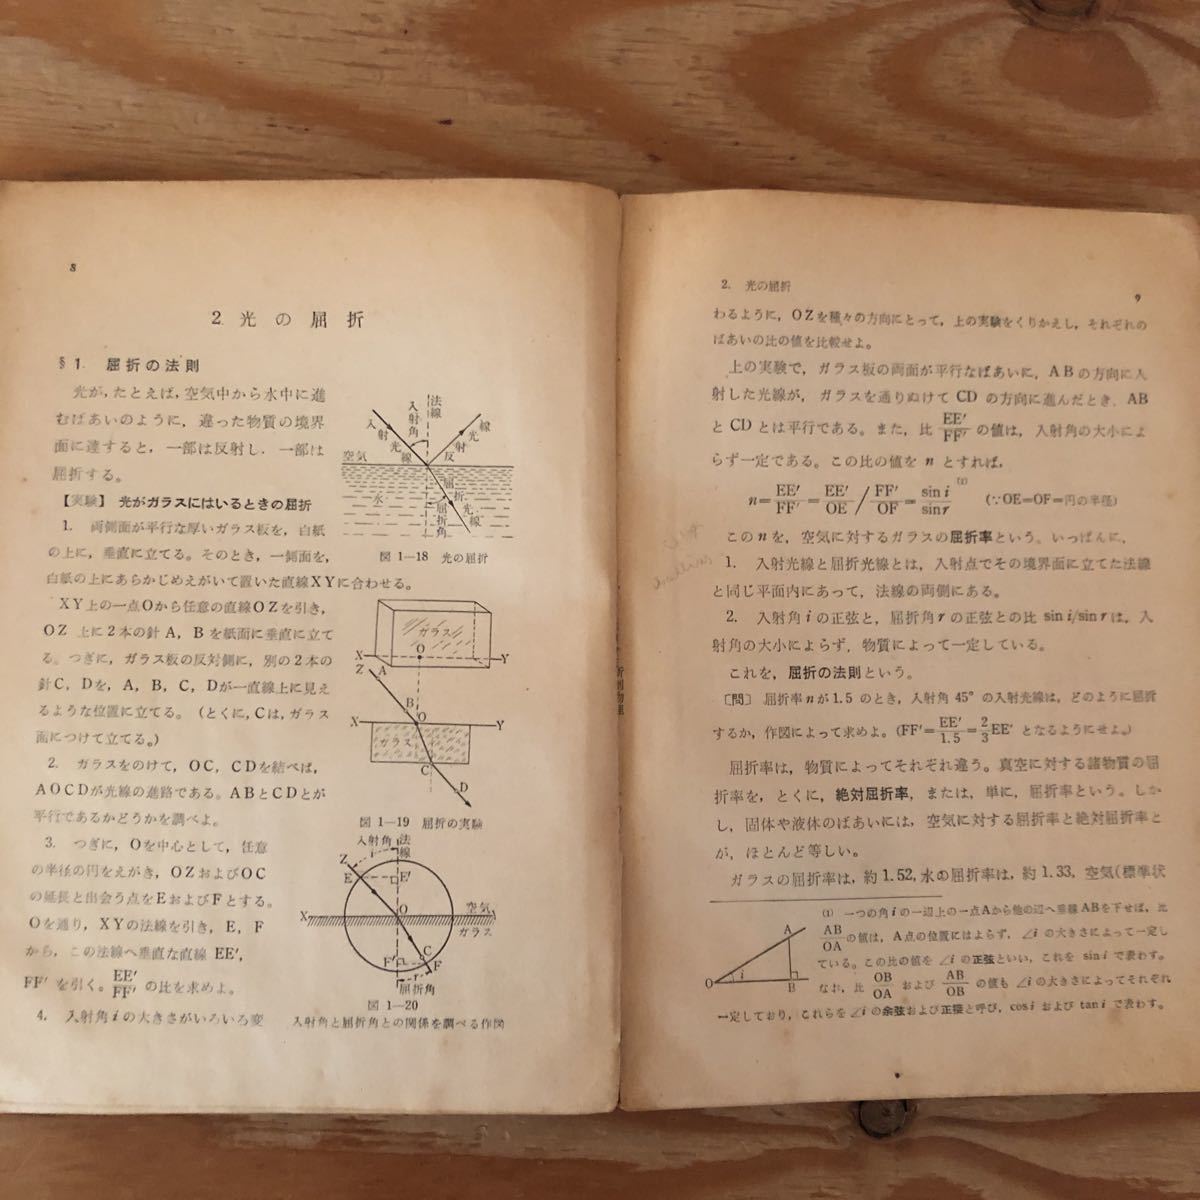 8
2 光の屈折
§1 屈折の法則
光が,たとえば,空気中から水中に進
むばあいのように,違った物質の境界
面に達すると,一部は反射し,一部は
屈折する。
【実験】 光がガラスにはいるときの屈折
1. 両側面が平行な厚いガラス板を,白紙
の上に,垂直に立てる。そのとき,一側面を,
白紙の上にあらかじめえがいて置いた直線XYに合わせる。
XY上の一点Oから任意の直線OZを引き,
OZ上に2本の針A,Bを紙面に垂直に立て
る。つぎに,ガラス板の反対側に,別の2本の
針C,Dを,A,B,C,Dが一直線上に見え
るような位置に立てる。(とくに,Cは,ガラス
面につけて立てる。)
2. ガラスをのけて,OC,CDを結べば,
AOCDが光線の進路である。ABとCDとが
平行であるかどうかを調べよ。
3. つぎに,Oを中心として,任意
の半径の円をえがき,OZおよびOC
の延長と出会う点をEおよびFとする。
Oを通り,XYの法線を引き,E,F
から,この法線へ垂直な直線EE′,
FF′を引く。EE′/FF′の比を求めよ。
4. 入射角iの大きさがいろいろ変
入射光線
入射角
法線
反射光線
空気
水
屈折角
屈折光線
図1—18 光の屈折
ガラス
X
O
Y
Z
A
B
X
O
Y
ガラス
C
D
図1—19 屈折の実験
入射角
法線
Z
E
E′
X
O
空気
Y
ガラス
C
F′
F
屈折角
図1—20
入射角と屈折角との関係を調べる作図
2. 光の屈折
9
わるように,OZを種々の方向にとって,上の実験をくりかえし,それぞれの
ばあいの比の値を比較せよ。
上の実験で,ガラス板の両面が平行なばあいに,ABの方向に入
射した光線が,ガラスを通りぬけてCDの方向に進んだとき,AB
とCDとは平行である。また,比EE′/FF′の値は,入射角の大小によ
らず一定である。この比の値をnとすれば,
n=EE′/FF′=EE′/OE/FF′/OF=sin i/sin r (1) (∵OE=OF=円の半径)
このnを,空気に対するガラスの屈折率という。いっぱんに,
1. 入射光線と屈折光線とは,入射点でその境界面に立てた法線
と同じ平面内にあって,法線の両側にある。
2. 入射角iの正弦と,屈折角rの正弦との比 sin i/sin r は,入
射角の大小によらず,物質によって一定している。
これを,屈折の法則という。
〔問〕 屈折率nが1.5のとき,入射角45°の入射光線は,どのように屈折
するか,作図によって求めよ。(FF′=EE′/1.5=2/3EE′ となるようにせよ。)
屈折率は,物質によってそれぞれ違う。真空に対する諸物質の屈
折率を,とくに,絶対屈折率,または,単に,屈折率という。しか
し,固体や液体のばあいには,空気に対する屈折率と絶対屈折率と
が,ほとんど等しい。
ガラスの屈折率は,約1.52,水の屈折率は,約1.33,空気(標準状
(1) 一つの角iの一辺上の一点Aから他の辺へ垂線ABを下せば,比
AB/OAの値は,A点の位置にはよらず,∠iの大きさによって一定し
ている。この比の値を∠iの正弦といい,これを sin i で表わす。
なお,比 OB/OA および AB/OB の値も∠iの大きさによってそれぞれ
一定しており,これらを∠iの余弦および正接と呼び,cos i および tan i で表わす。
A
O
i
B